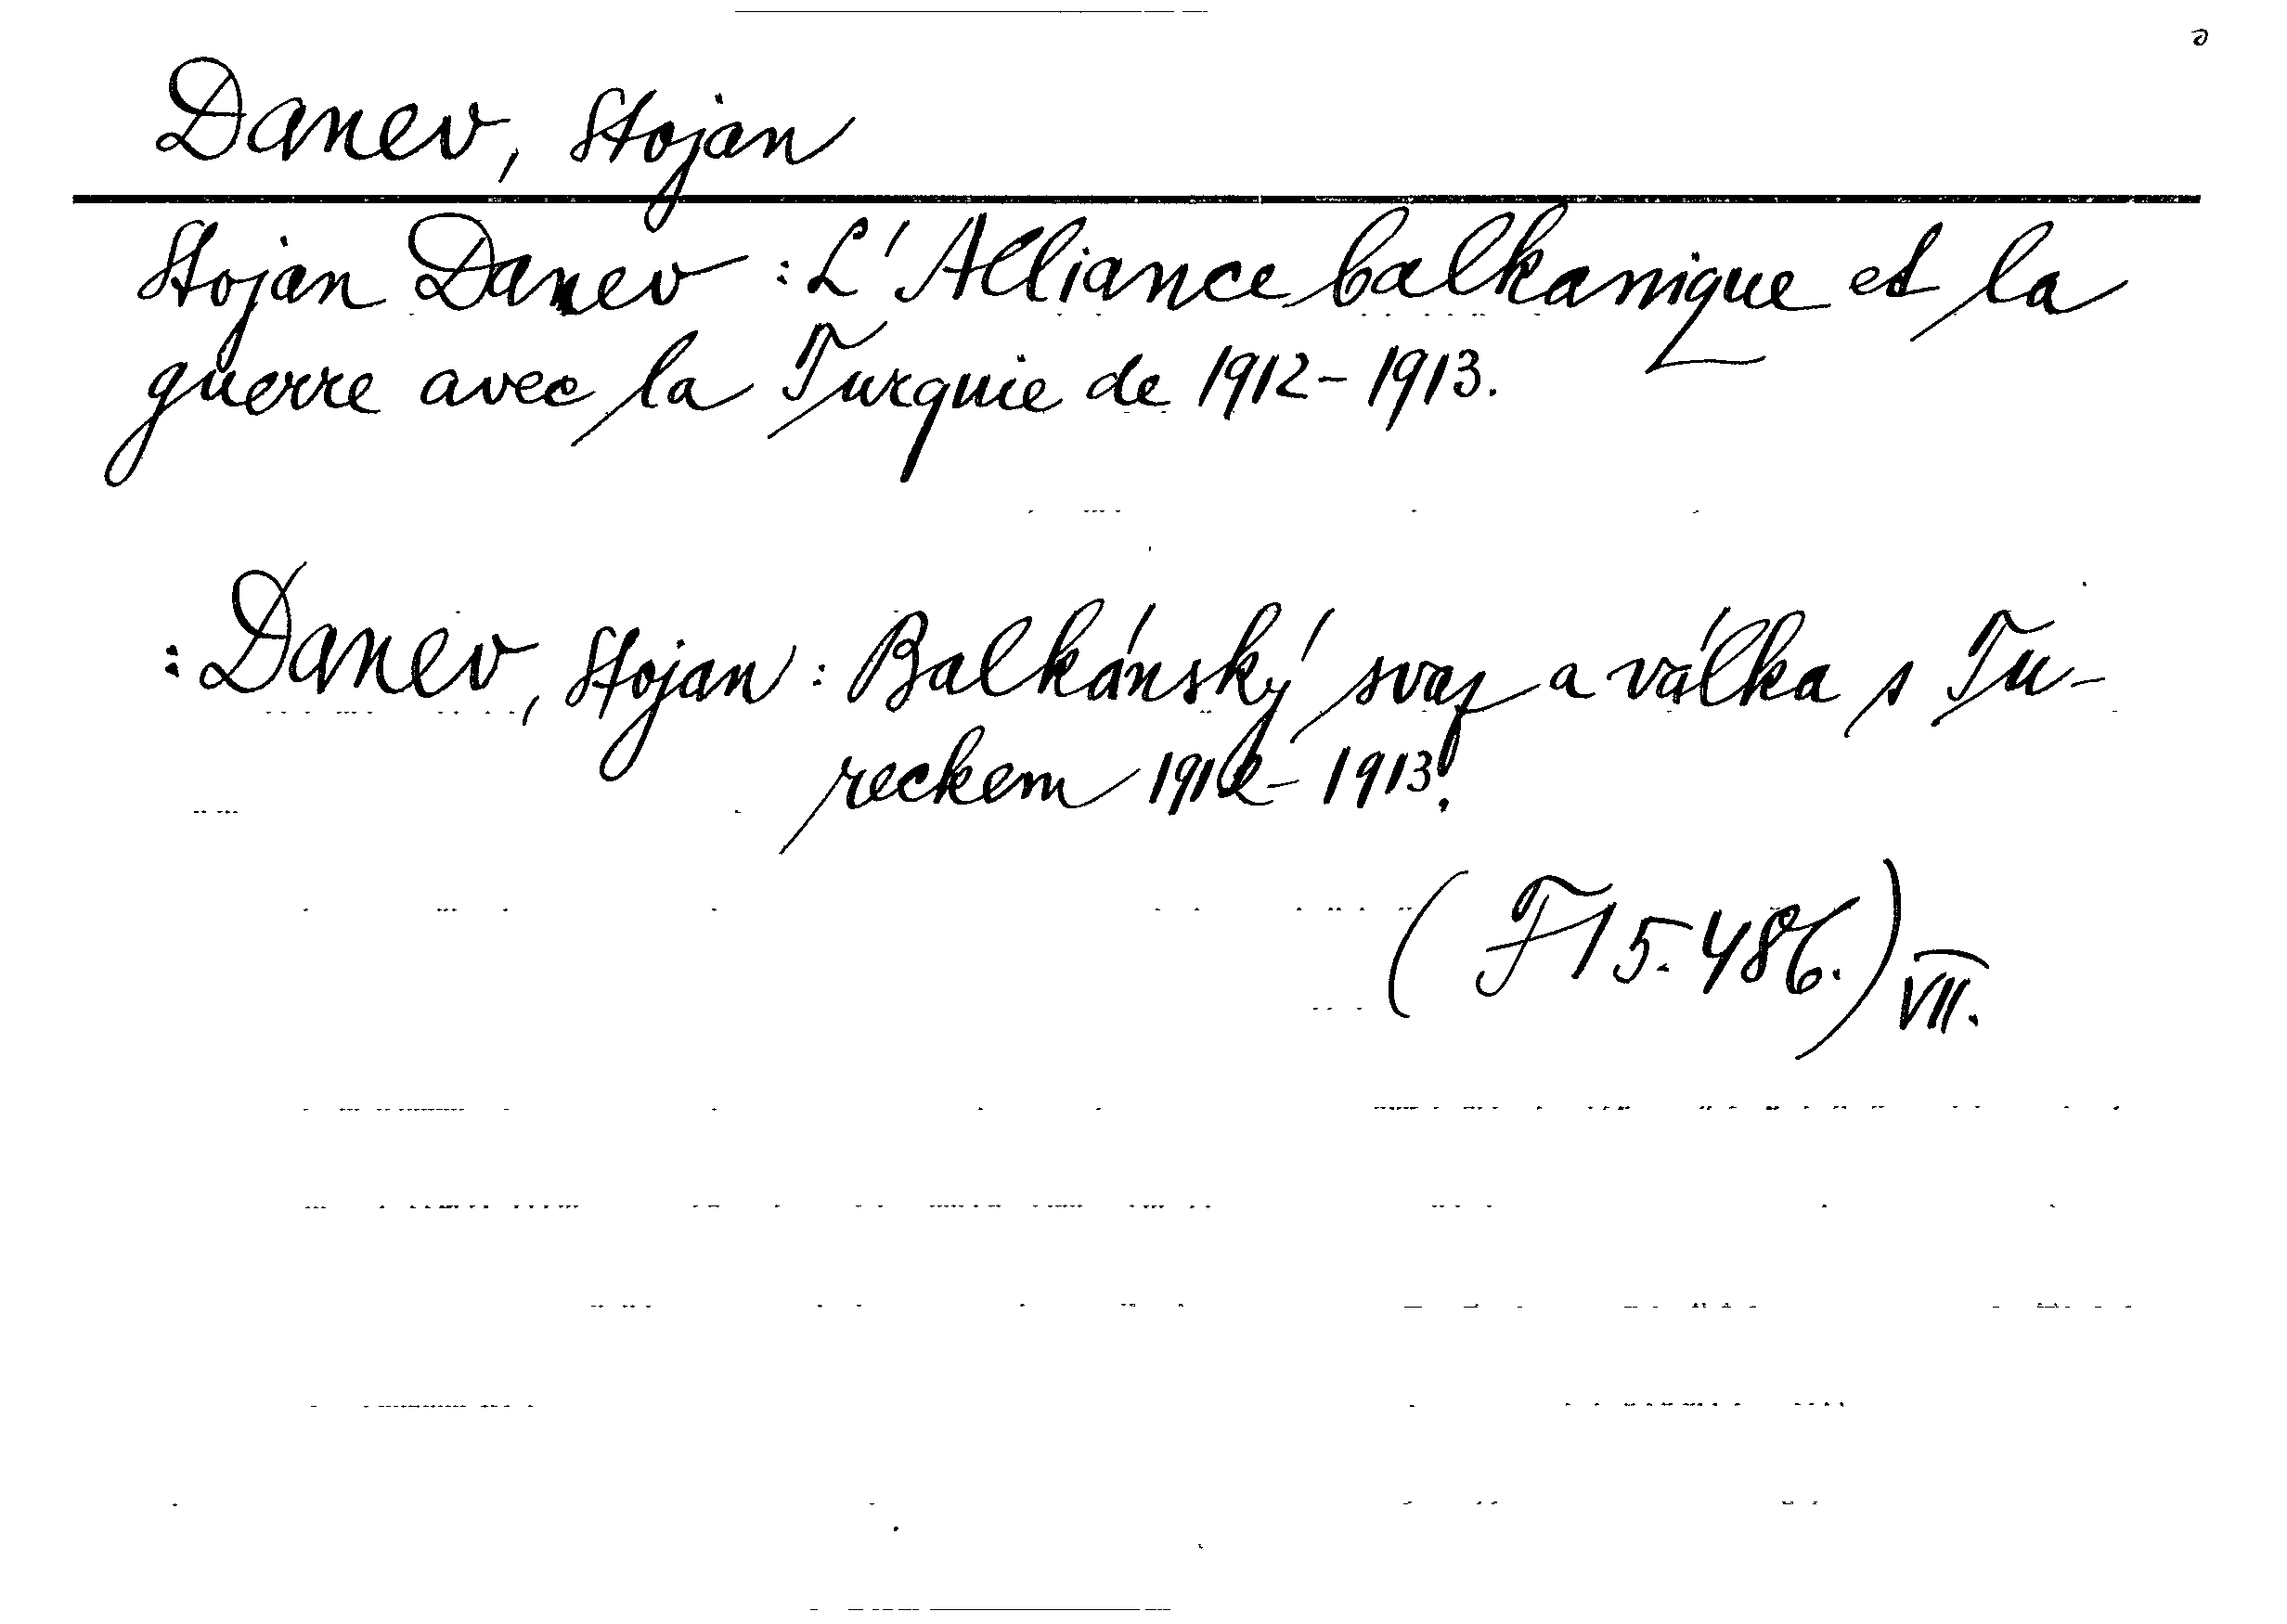 Danev, Stojan
Stojan Danev : L'Alliance balkanique et la
guerre avec la Turquie de 1912-1913.
: Danev, Stojan : Balkánský svaz a válka s Tu-
reckem 1912-1913.
(F 15.486.) VII.